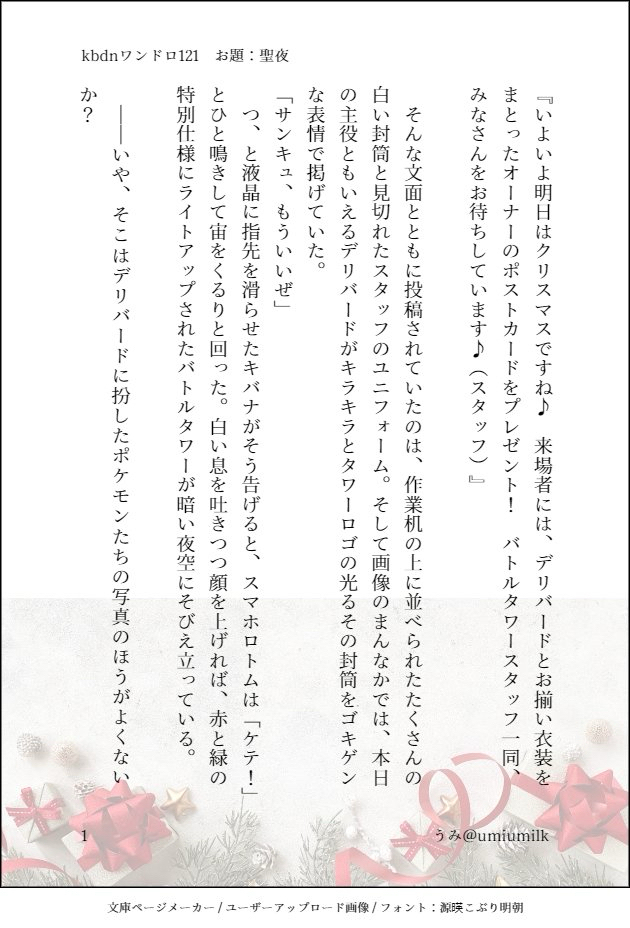 kbdnワンドロ121　お題：聖夜
『いよいよ明日はクリスマスですね♪　来場者には、デリバードとお揃い衣装を
まとったオーナーのポストカードをプレゼント！　バトルタワースタッフ一同、
みなさんをお待ちしています♪（スタッフ）』
そんな文面とともに投稿されていたのは、作業机の上に並べられたたくさんの
白い封筒と見切れたスタッフのユニフォーム。そして画像のまんなかでは、本日
の主役ともいえるデリバードがキラキラとタワーロゴの光るその封筒をゴキゲン
な表情で掲げていた。
「サンキュ、もういいぜ」
つ、と液晶に指先を滑らせたキバナがそう告げると、スマホロトムは「ケテ！」
とひと鳴きして宙をくるりと回った。白い息を吐きつつ顔を上げれば、赤と緑の
特別仕様にライトアップされたバトルタワーが暗い夜空にそびえ立っている。
――いや、そこはデリバードに扮したポケモンたちの写真のほうがよくない
か？
1
うみ@umiumilk
文庫ページメーカー / ユーザーアップロード画像 / フォント：源暎こぶり明朝